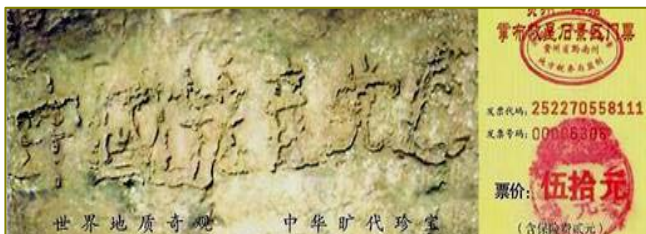 中國共産党亡
世界地质奇观 中华旷代珍宝
掌布救星石景区门票
贵州省黔南州
地方税务局监制
发票代码: 252270558111
发票号码: 00006306
票价: 伍拾元
(含保险费贰元)